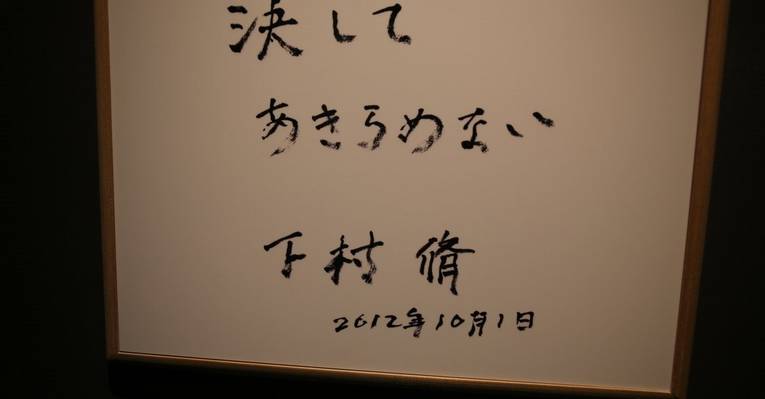 決して
あきらめない
下村 脩
2012年10月1日